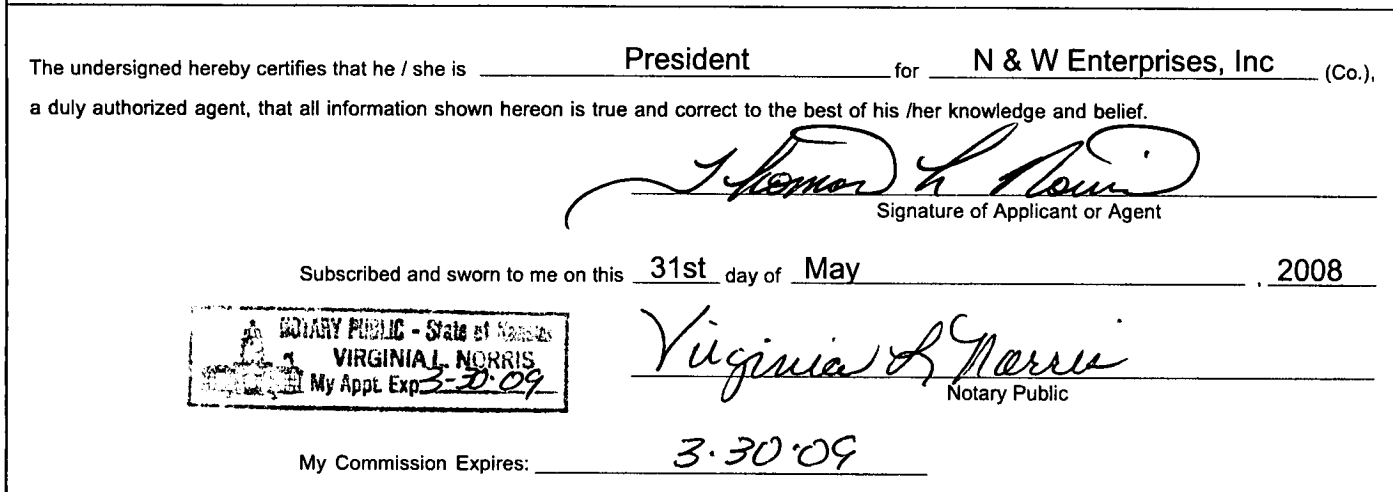 The undersigned hereby certifies that he / she is President for N & W Enterprises, Inc (Co.),
a duly authorized agent, that all information shown hereon is true and correct to the best of his /her knowledge and belief.
Thomas L Norris
Signature of Applicant or Agent
Subscribed and sworn to me on this 31st day of May , 2008
NOTARY PUBLIC - State of Kansas
VIRGINIA L. NORRIS
My Appt. Exp 3-30-09
Virginia L Norris
Notary Public
My Commission Expires: 3.30.09